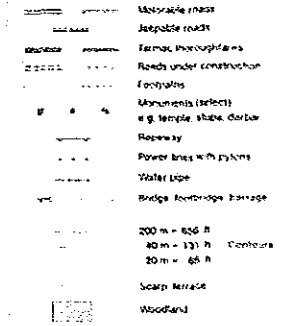 Motorable roads
Jeepable roads
Tarmac thoroughfares
Roads under construction
Footpaths
Monuments (select)
e.g. temple, stupa, darbar
Ropeway
Power lines with pylons
Water pipe
Bridge footbridge barrage
200 m = 656 ft
40 m = 131 ft Contours
20 m = 65 ft
Scarp terrace
Woodland